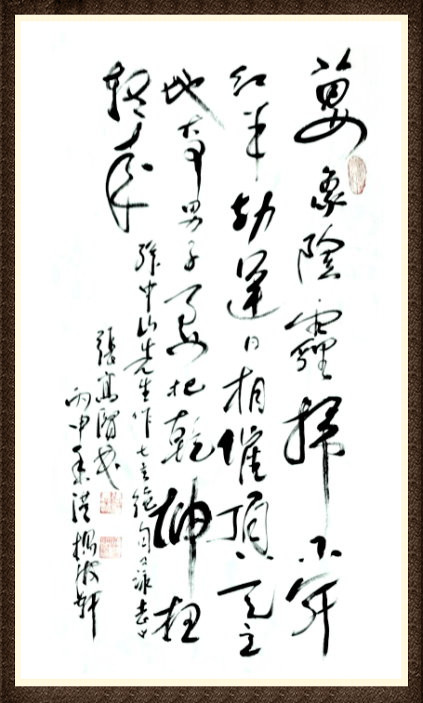 萬象陰霾掃不開
红羊劫運日相催頂天立
地奇男子要把乾坤扭
轉來
孫中山先生作七言絕句
張高
丙申